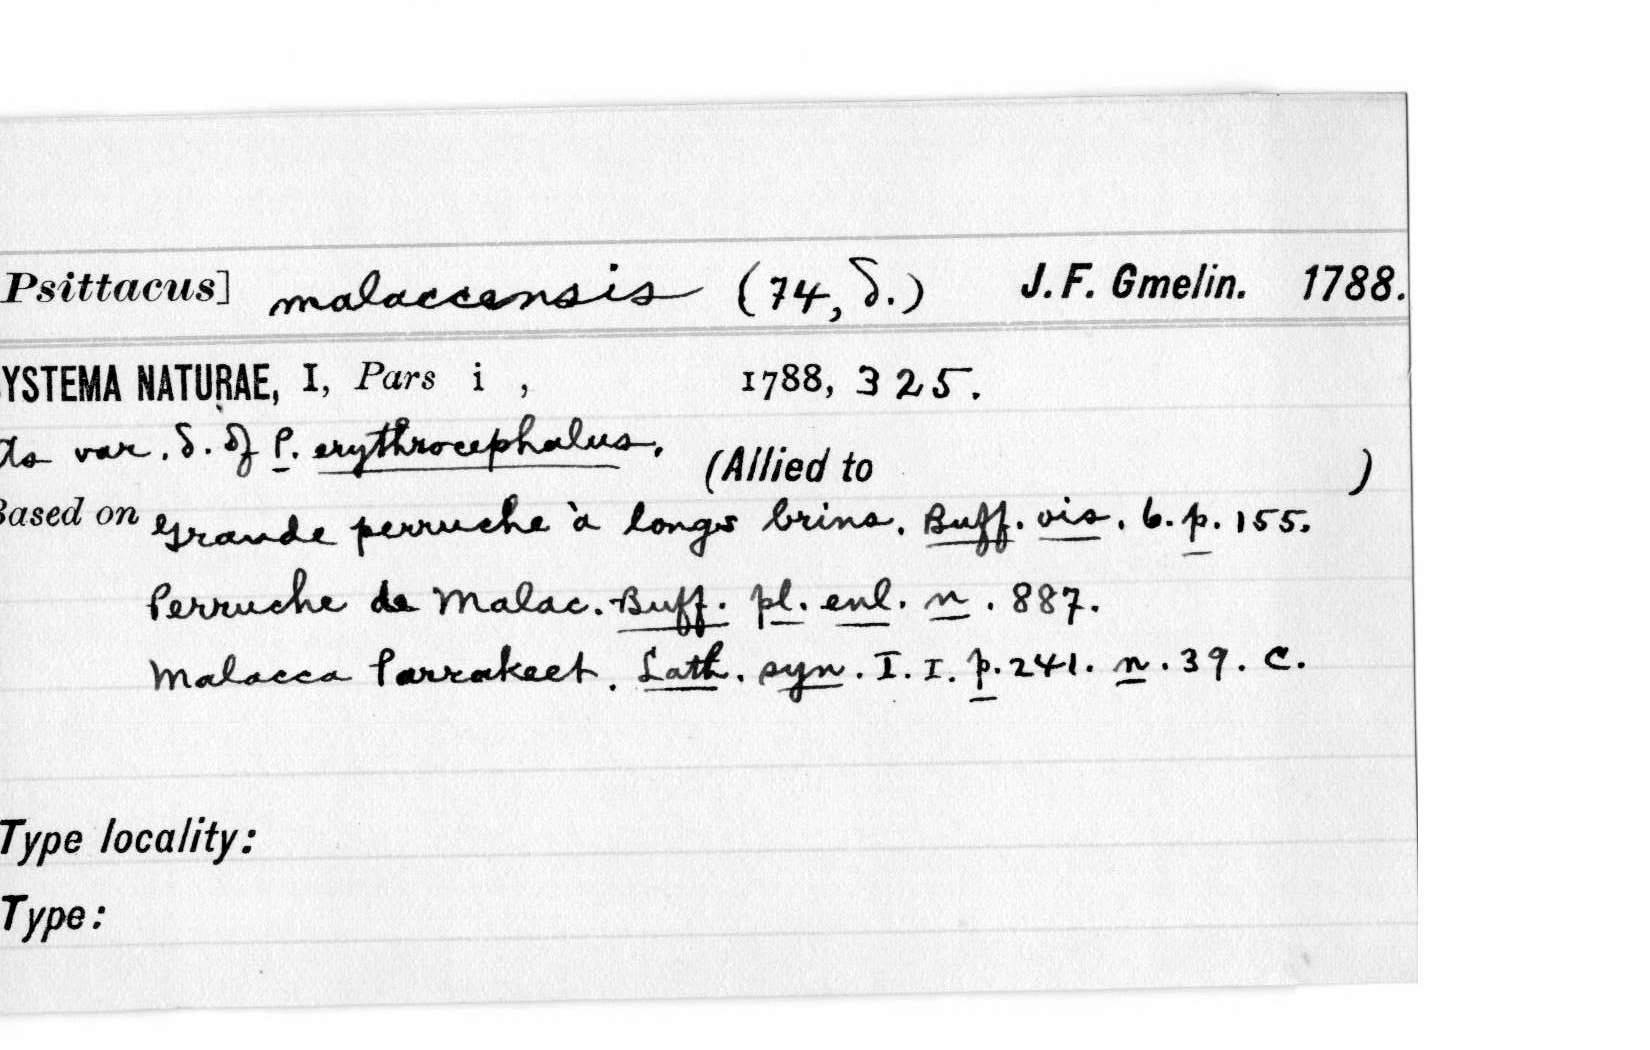 Psittacus] malaccensis (74, δ.) J. F. Gmelin. 1788.
YSTEMA NATURAE, I, Pars i , 1788, 325.
As var. δ. of P. erythrocephalus. (Allied to )
Based on Grande perruche à longs brins. Buff. ois. 6. p. 155.
Perruche de Malac. Buff. pl. enl. n. 887.
Malacca Parrakeet. Lath. syn. I. I. p. 241. n. 39. C.
Type locality:
Type: